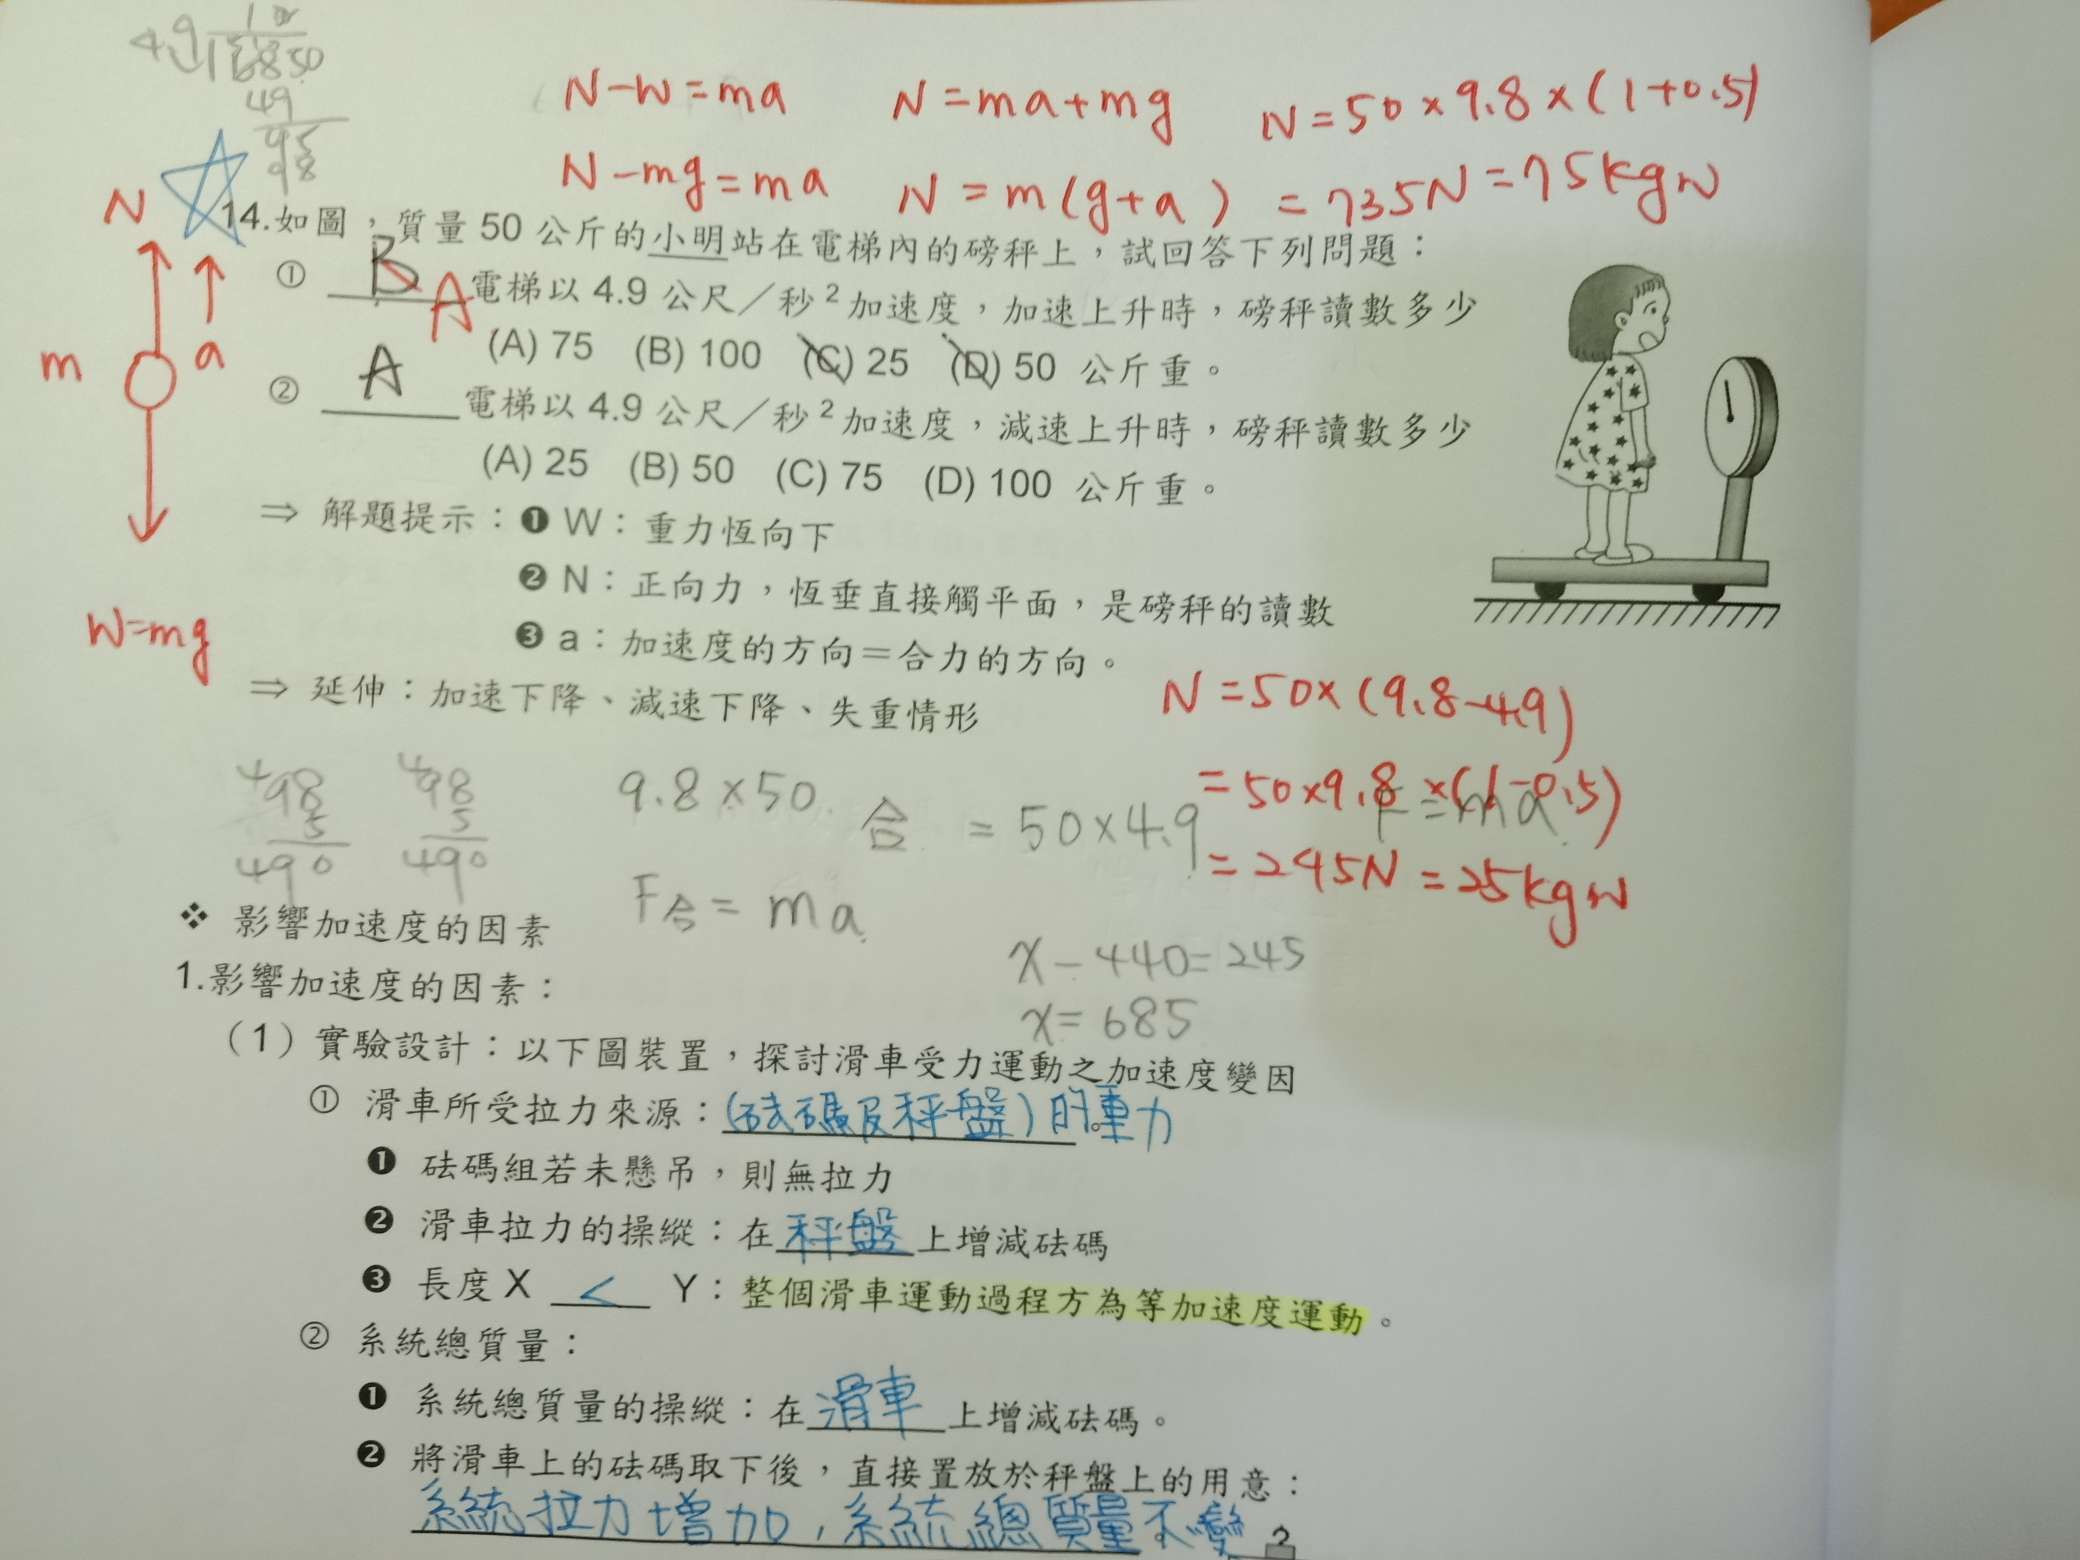 49
49
98
N-W=ma
N=ma+mg
N=50×9.8×(1+0.5)
N-mg=ma
N=m(g+a)
=735N=75kgw
N
a
m
W=mg
14.如圖，質量 50 公斤的小明站在電梯內的磅秤上，試回答下列問題：
① B A 電梯以 4.9 公尺／秒²加速度，加速上升時，磅秤讀數多少
(A) 75 (B) 100 (C) 25 (D) 50 公斤重。
② A 電梯以 4.9 公尺／秒²加速度，減速上升時，磅秤讀數多少
(A) 25 (B) 50 (C) 75 (D) 100 公斤重。
⇒ 解題提示：❶ W：重力恆向下
❷ N：正向力，恆垂直接觸平面，是磅秤的讀數
❸ a：加速度的方向＝合力的方向。
⇒ 延伸：加速下降、減速下降、失重情形
N=50×(9.8-4.9)
=50×9.8×(1-0.5)
=245N=25kgw
98
5
490
98
5
490
9.8×50
合 =50×4.9
F=ma
F合=ma
x-440=245
x=685
❖ 影響加速度的因素
1.影響加速度的因素：
（1）實驗設計：以下圖裝置，探討滑車受力運動之加速度變因
① 滑車所受拉力來源：(砝碼及秤盤)的重力。
❶ 砝碼組若未懸吊，則無拉力
❷ 滑車拉力的操縱：在秤盤上增減砝碼
❸ 長度 X < Y：整個滑車運動過程方為等加速度運動。
② 系統總質量：
❶ 系統總質量的操縱：在滑車上增減砝碼。
❷ 將滑車上的砝碼取下後，直接置放於秤盤上的用意：
系統拉力增加，系統總質量不變